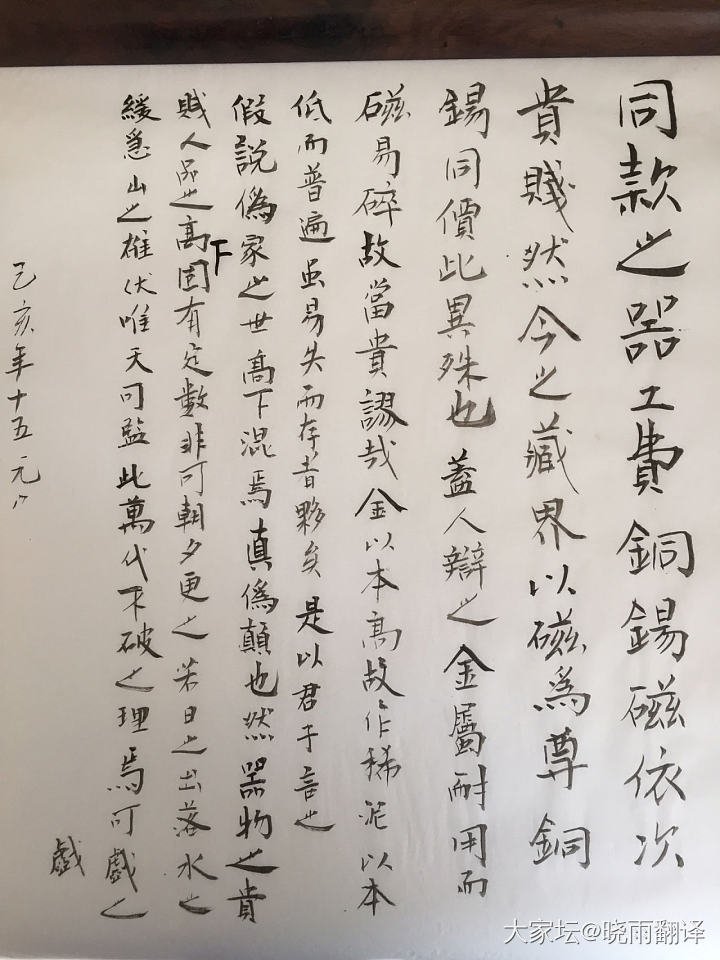 同款之器工費銅錫磁依次
貴賤然今之藏界以磁為尊銅
錫同價此異殊也蓋人辯之金屬耐用而
磁易碎故當貴謬哉金以本高故作稀泥以本
低而普遍虽易失而存者夥矣是以君子言之
假說偽家之世高下混焉真偽顛也然器物之貴
賤人品之高下固有定數非可朝夕更之若日之出落水之
緩急山之雄伏唯天可監此萬代不破之理焉可戲之
戲
乙亥年十五元八
大家坛@晓雨翻译